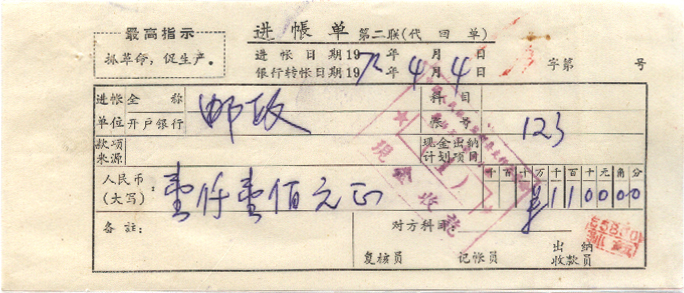 最高指示
抓革命，促生产。
进帐单 第二联(代回单)
进帐日期1972年 月 日
银行转帐日期1972年4月4日 字第 号
进帐单位 全称 邮政 科目
开户银行 帐号 123
款项来源 现金出纳计划项目
人民币(大写)： 壹仟壹佰元正 千百十万千百十元角分 ¥110000
备注： 对方科目
复核员 记帐员 出纳收款员
现金收讫